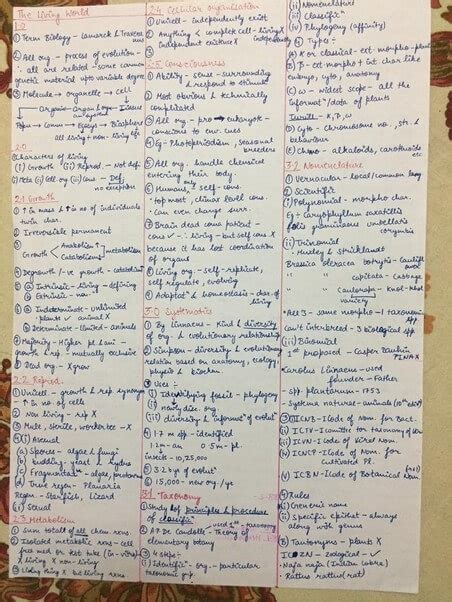 The Living World
1.0
① Term Biology - Lamarck & Treviranus
② All org - process of evolution -
∴ all are related - some common
genetic material upto variable degree
③ Molecule → organelle → cell
Organic - Organ
Popu → Comm → Ecosys → Biosphere
all living + non-living life
2.0
Characters of living
(i) Growth (ii) Reprod. - Not def.
(i) Meta (ii) Cell org (iii) Cons - Def,
no exception
2.1 Growth
① ↑ in mass & ↑ in no. of individuals
twin char.
② Irreversible permanent
③ Growth Anabolism ↑
Catabolism
metabolism
④ Degrowth / -ve growth - catabolism
⑤ (a) Intrinsic - living - defining
(b) Extrinsic - non
⑥ (a) Indeterminate - unlimited
plants ✓ animal X
(b) Determinate - limited - animals
⑦ Majority - Higher pl & ani -
growth & rep - mutually exclusive
⑧ Dead org - X grow
2.2 Reprod.
① Unicell - growth & rep synonym
② ↑ in no. of cells
② Non living rep X
③ Mule, sterile, worker bee - X
④ (i) Asexual
(a) spores - algae & fungi
(b) budding - yeast & hydra
(c) Fragmentatn - algae,
(d) True regen - Planaria
Regen - Starfish, Lizard
(ii) Sexual
2.3 Metabolism
① Sum total of all chem. rxns
② Isolated metabolic rxns - cell
free med or test tube (in-vitro)
X living X non-living
③ Living thing X but living rxns
2.4 Cellular organisation
① Unicell - independently exist
② Anything & complete cell - living X
independent existence X
2.5 Consciousness
① Ability - sense - surrounding
& respond to stimuli
② Most obvious & technically
complicated
③ All org - pro → eukaryote -
conscious to env. cues
④ Eg - Photoperiodism, seasonal
breeders
⑤ All org. handle chemical
entering their body
⑥ Humans, self-cons.
• top most, climax level cons
• can even change surr.
⑦ Brain dead coma patient -
cons ✓ - living - but self cons X
because it has lost coordination
of organs
⑧ Living org - self-replicate,
self regulate, evolving
⑨ Adaptatn & homeostasis - char. of
living
3.0 Systematics
① By Linnaeus - Kind & diversity
of org. & evolutionary relationship
② Simpson - diversity & evolutionary
relation based on anatomy, ecology,
physio & biochem
③ Uses:
(i) Identifying fossil - phylogeny
(ii) newly disc. org
(iii) diversity & informatn of evolutn
④ 1.7 m spp - identified
1.2 m - an 0.5 m - pl.
insect - 10,25,000
⑤ 3.2 b yrs of evolutn
⑥ 15,000 - new org / yr
3.1 Taxonomy
① Study of principles & procedure
of classifn
② AP De Candolle - Theory of
elementary botany
③ 4 steps -
(i) Identificn - org - particular
taxonomic grp.
(ii) Nomenclature
(iii) Classificn
(iv) Phylogeny (affinity)
④ Types:
A) α or classical - ext. morpho - plant
B) β - ext morpho + int char like
embryo, cyto, anatomy
C) ω - widest scope - all the
informatn / data of plants
D) Cyto - Chromosome no., str. &
behaviour
E) Chemo - alkaloids, carotenoids
etc
3.2 Nomenclature
① Vernacular - local / common lang
② Scientific
(i) Polynomial - morpho char.
Eg - Caryophyllum saxatilis
folis gramineus umbellatis
corymbis
(ii) Trinomial
• Huxley & Stricklandt
Brassica oleracea botrytis - Cauliflower
" " capitata - Cabbage
" " caulorapa - Knol-khol
variety
• All 3 - same morpho - 1 taxonomic spp
can't interbreed - 3 biological spp
(iii) Binomial
• 1st proposed - Casper Bauhin
PINAX
Carolus Linnaeus - used
founder - Father
spp. plantarum - 1753
Systema naturae - animals (10th edn)
③ (i) ICNB - I Code of Nom. for Bact.
(ii) ICTV - I Committee for taxonomy of
(iii) ICVN - I Code of Viral Nom.
(iv) ICNCP - I Code of Nom. for
cultivated Pl.
(v) ICBN - I Code of Botanical Nom
④ Rules
(i) Generic name
(ii) Specific epithet - always
along with genus
⑤ Tautonyms - plants X
ICZN - zoological - ✓
Naja naja (Indian Cobra)
Rattus rattus (rat)